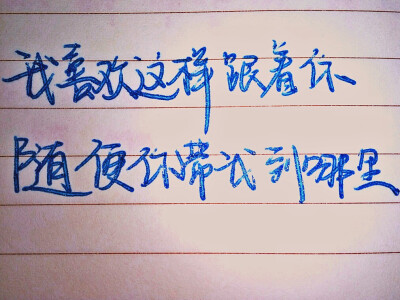 我喜欢这样跟着你
随便你带我到哪里